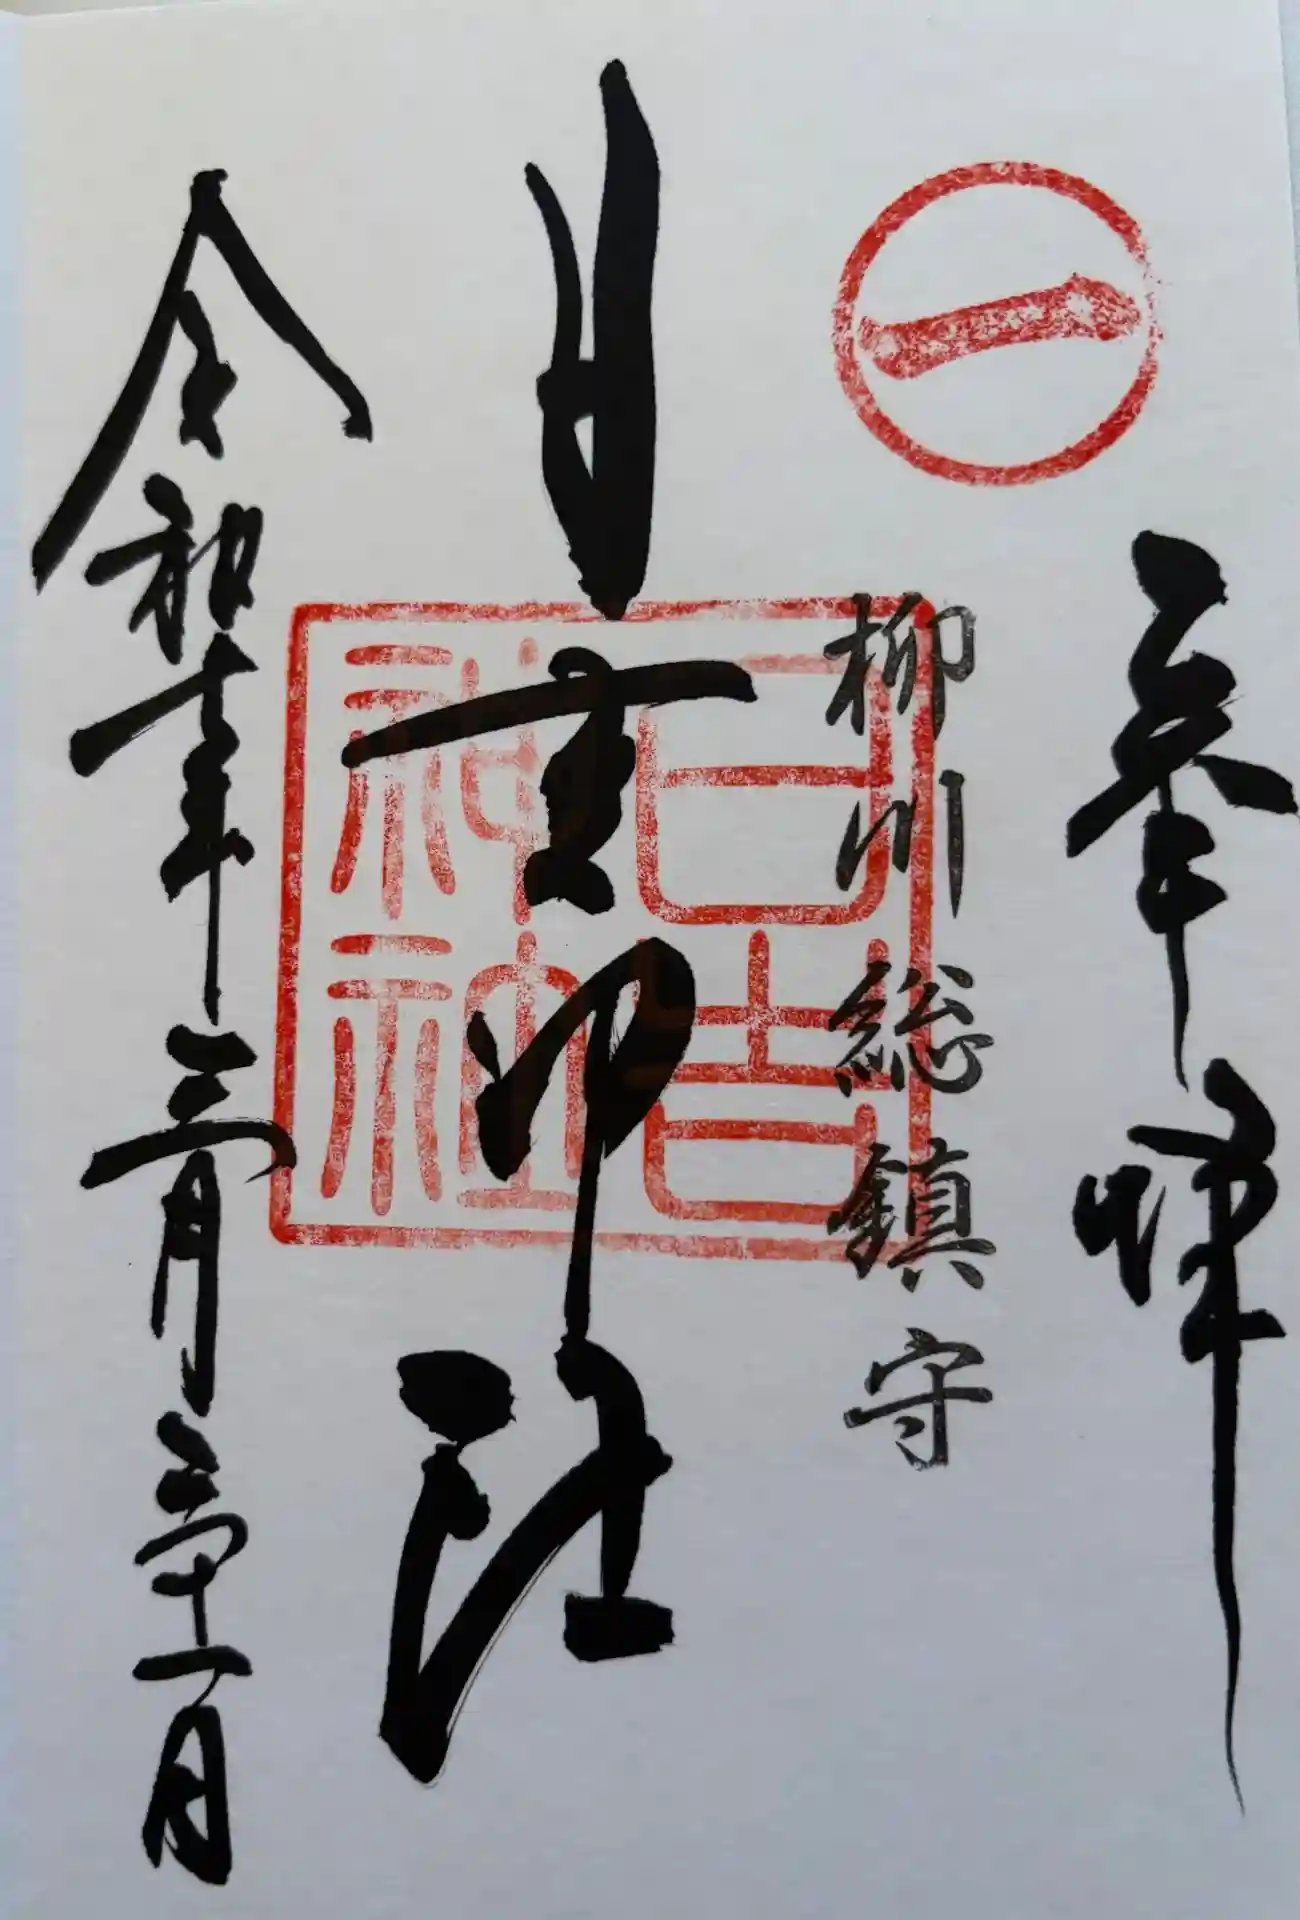 奉拝
一
柳川総鎮守
日吉神社
日吉
神社
令和年三月三十一日